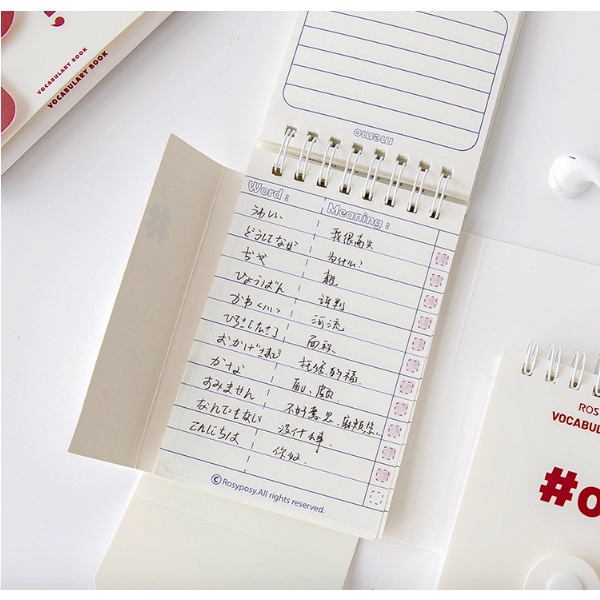 VOCABULARY BOOK
VOCABULARY BOOK
memo
Word: Meaning:
うれしい 我很高兴
どうしてなぜ 为什么?
ぢゃ
ひょうばん 评判
かわ 河流
面积
おかげさまで 托您的福
かなり 颇
すみません 不好意思,麻烦您
なんでもない 没什么事
こんにちは 你好
©Rosyposy.All rights reserved.
ROS
VOCABULA
#o